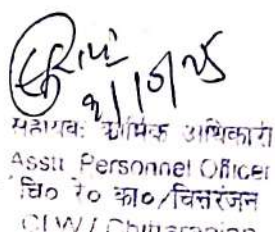 9/10/25
सहायक कार्मिक अधिकारी
Asstt Personnel Officer
चि० रे० का०/चित्तरंजन
CLW / Chittaranjan